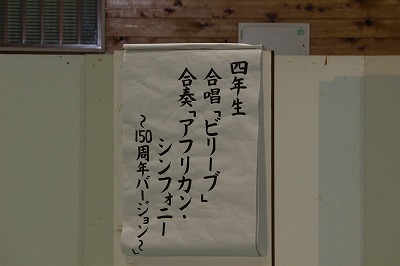 四年生
合唱「ビリーブ」
合奏「アフリカン・
シンフォニー
～150周年バージョン～」